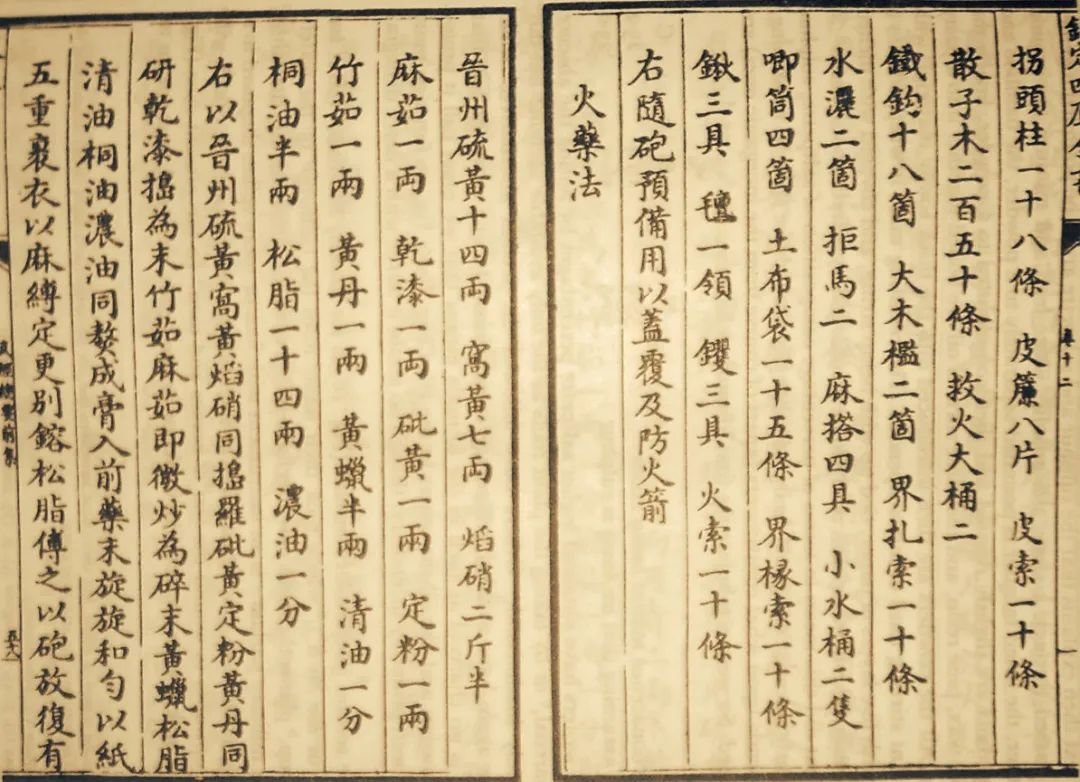 欽定四庫全書
卷十二
拐頭柱一十八條　皮簾八片　皮索一十條
散子木二百五十條　救火大桶二
鐵鈎十八箇　大木檻二箇　界扎索一十條
水濃二箇　拒馬二　麻搭四具　小水桶二隻
唧筒四箇　土布袋一十五條　界椽索一十條
鍬三具　氊一領　钁三具　火索一十條
右隨砲預備用以蓋覆及防火箭
火藥法
晉州硫黃十四兩　窩黃七兩　焰硝二斤半
麻茹一兩　乾漆一兩　砒黃一兩　定粉一兩
竹茹一兩　黃丹一兩　黃蠟半兩　清油一分
桐油半兩　松脂一十四兩　濃油一分
右以晉州硫黃窩黃焰硝同搗羅砒黃定粉黃丹同
研乾漆搗為末竹茹麻茹即微炒為碎末黃蠟松脂
清油桐油濃油同熬成膏入前藥末旋旋和勻以紙
五重裹衣以麻縛定更別鎔松脂傅之以砲放復有
武經總要前集